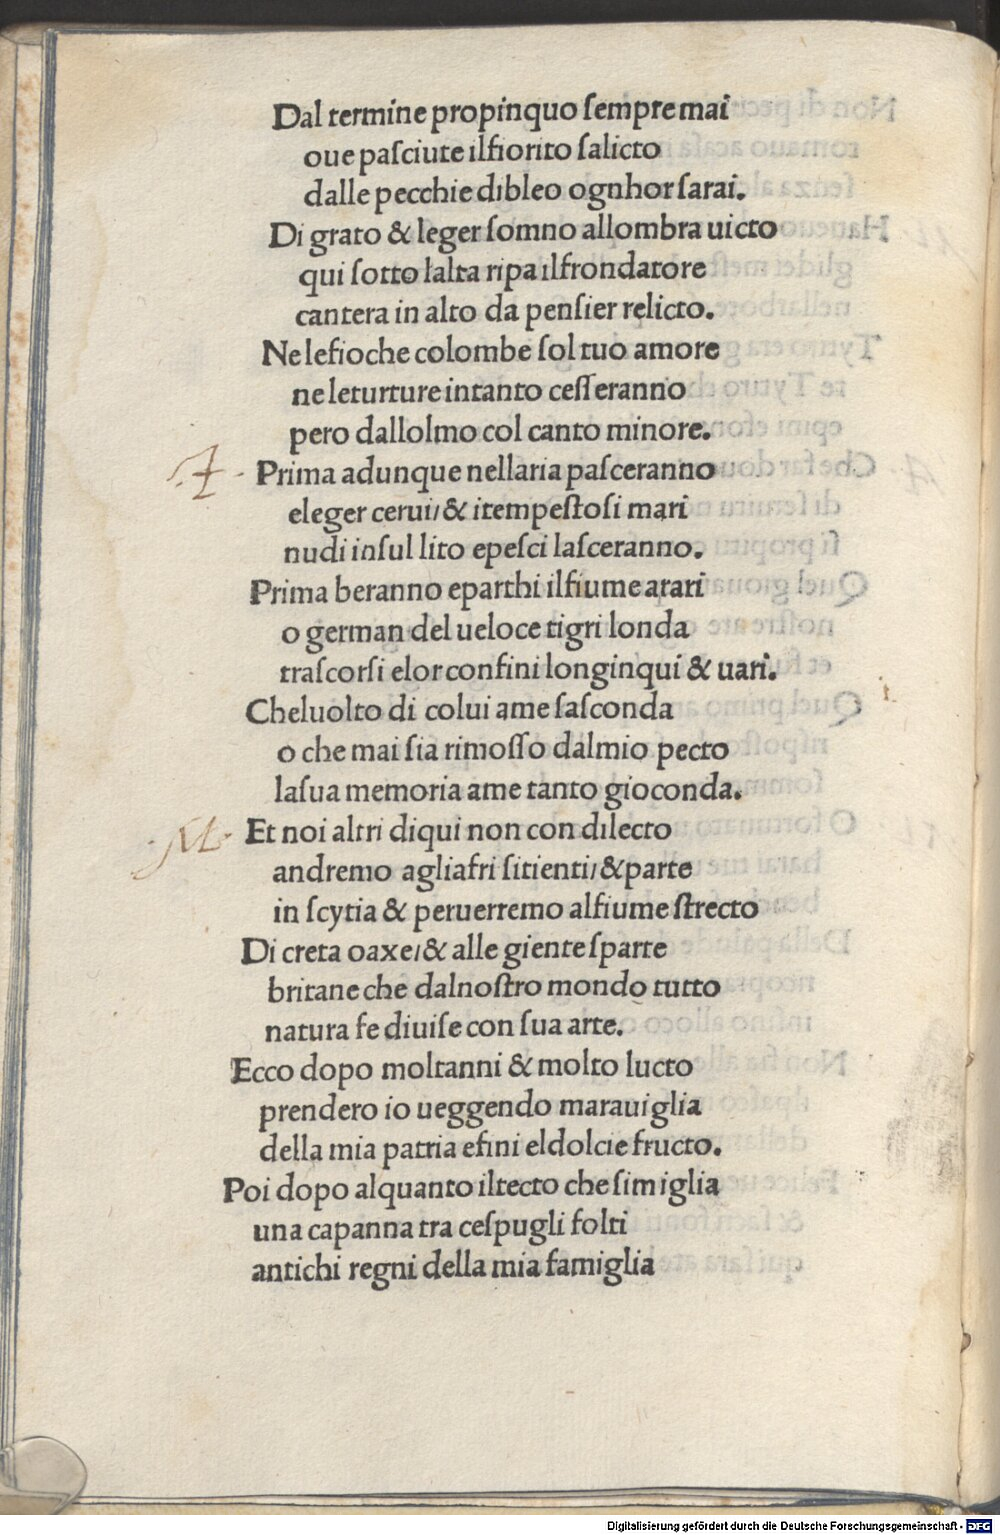 Dal termine propinquo ſempre mai
oue paſciute ilfiorito ſalicto
dalle pecchie dibleo ognhor ſarai.
Di grato & leger ſomno allombra uicto
qui ſotto lalta ripa ilfrondatore
cantera in alto da penſier relicto.
Ne lefioche colombe ſol tuo amore
ne leturture intanto ceſſeranno
pero dallolmo col canto minore.
A. Prima adunque nellaria paſceranno
eleger cerui/& itempeſtoſi mari
nudi inſul lito epeſci laſceranno.
Prima beranno eparthi ilfiume arari
o german del ueloce tigri londa
traſcorſi elor confini longinqui & uari.
Cheluolto di colui ame ſaſconda
o che mai ſia rimoſſo dalmio pecto
laſua memoria ame tanto gioconda.
M. Et noi altri diqui non con dilecto
andremo agliafri ſitienti/&parte
in ſcytia & peruerremo alfiume ſtrecto
Di creta oaxe/& alle giente ſparte
britane che dalnoſtro mondo tutto
natura fe diuiſe con ſua arte.
Ecco dopo moltanni & molto lucto
prendero io ueggendo marauiglia
della mia patria efini eldolcie fructo.
Poi dopo alquanto iltecto che ſimiglia
una capanna tra ceſpugli folti
antichi regni della mia famiglia
Digitalisierung gefördert durch die Deutsche Forschungsgemeinschaft - DFG